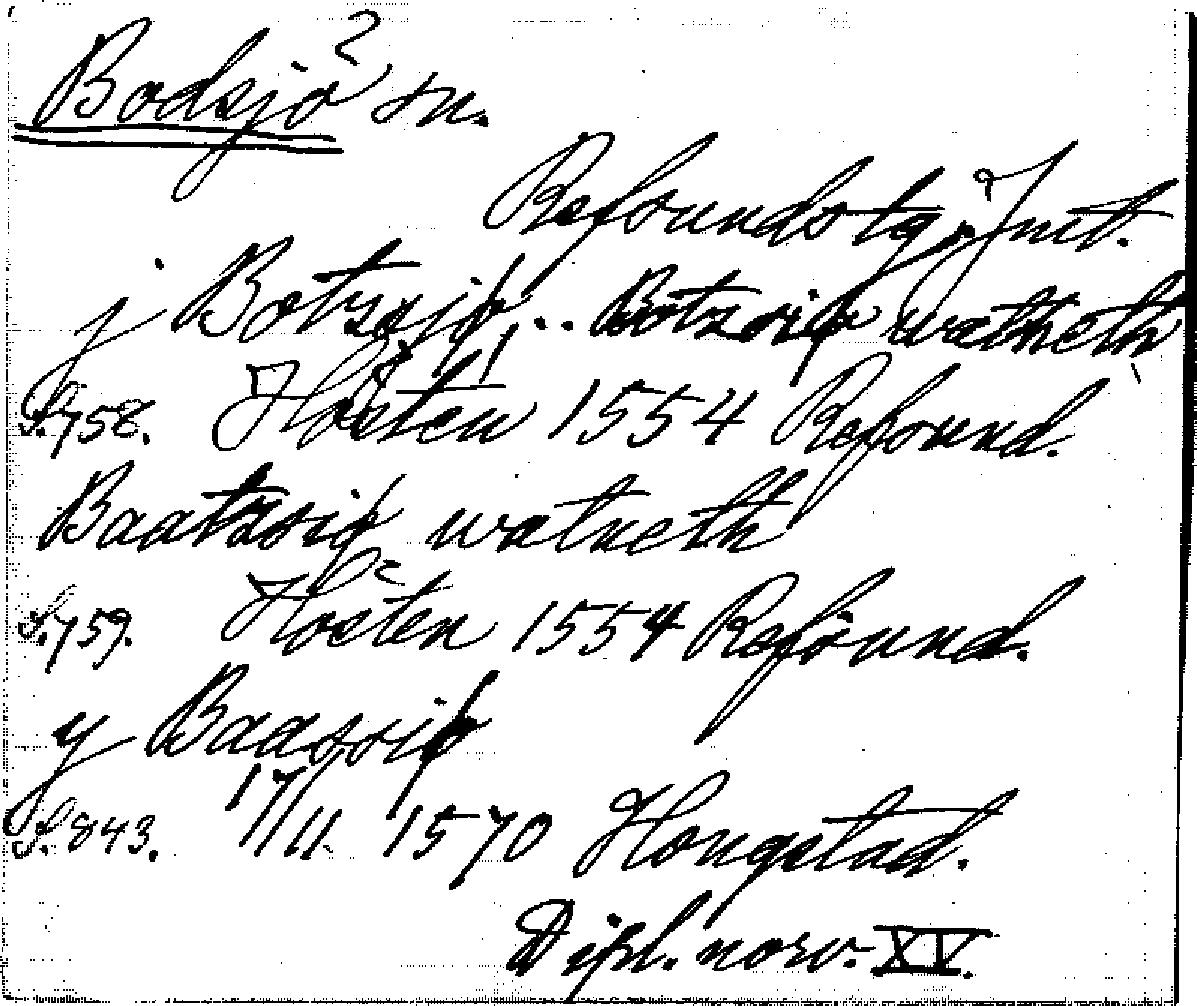 Bodsjö sn.
Refsunds tg, Jmt.
j Botzsjø.. Botzsiø watneth
S. 758. Hösten 1554 Refsund.
Baatzsiø watneth
S. 759. Hösten 1554 Refsund.
y Baassiø
S. 843. 17/11 1570 Hougstad.
Dipl. norv. XV.